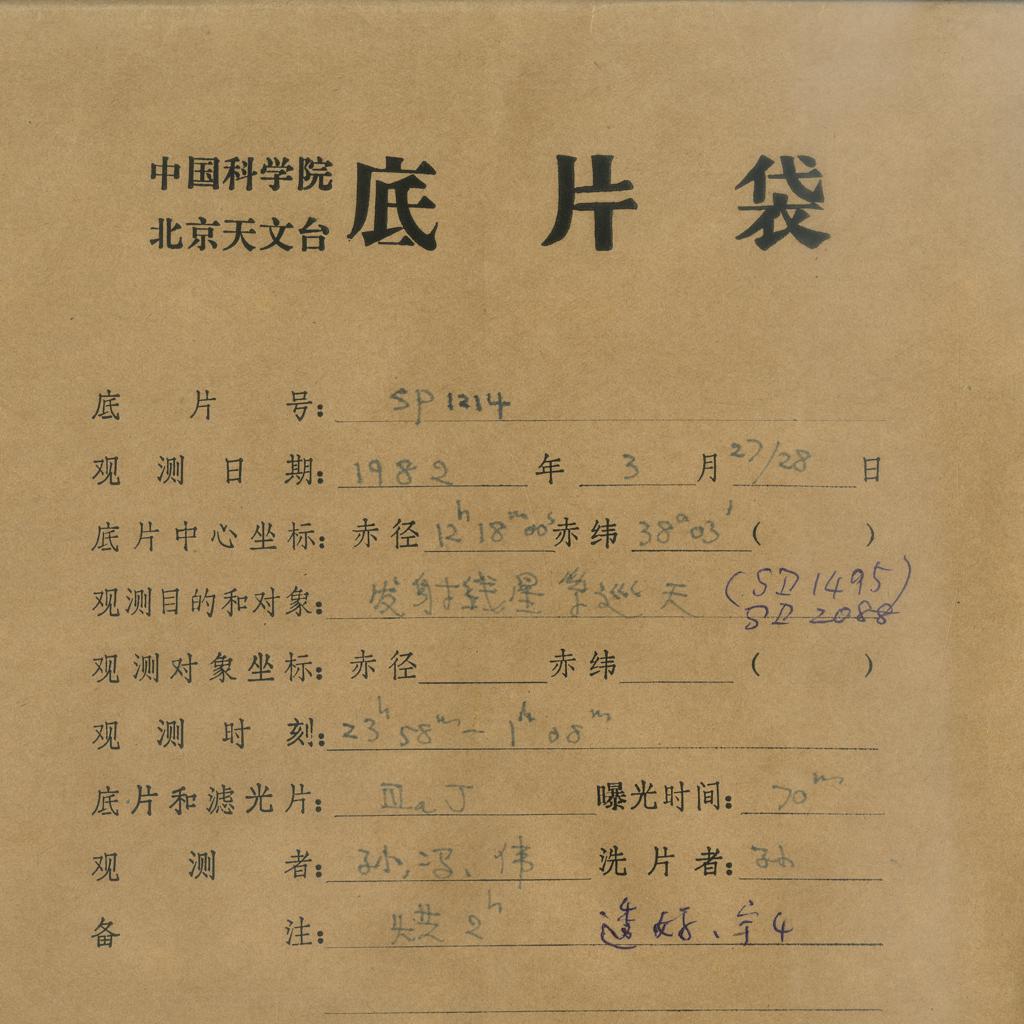 中国科学院
北京天文台
底片袋
底片号: SP 1214
观测日期: 1982 年 3 月 27/28 日
底片中心坐标: 赤径 12h 18m 00s 赤纬 38° 03′ ( )
观测目的和对象: 发射线星系巡天 (SD 1495)
SD 2088
观测对象坐标: 赤径 赤纬 ( )
观测时刻: 23h 58m — 1h 08m
底片和滤光片: IIIa J 曝光时间: 70m
观测者: 孙, 冯、伟 洗片者: 孙
备注: 2h